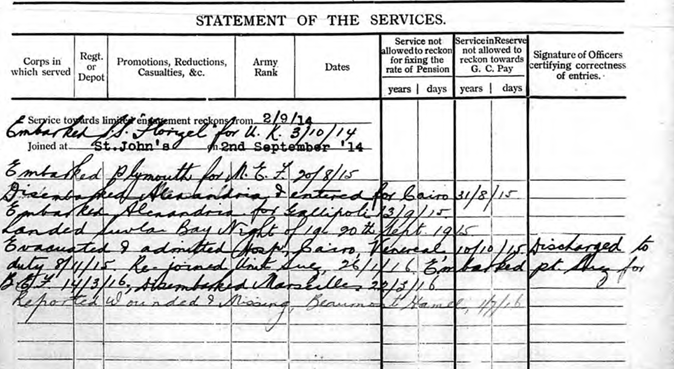 STATEMENT OF THE SERVICES.
Corps in which served
Regt. or Depot
Promotions, Reductions, Casualties, &c.
Army Rank
Dates
Service not allowed to reckon for fixing the rate of Pension
years
days
Service in Reserve not allowed to reckon towards G. C. Pay
years
days
Signature of Officers certifying correctness of entries.
Service towards limited engagement reckons from 2/9/14
Embarked S.S. "Florizel" for U.K. 3/10/14
Joined at St.John's on 2nd September '14
Embarked Plymouth for M.E.F. 20/8/15
Disembarked Alexandria & entered for Cairo 31/8/15
Embarked Alexandria for Gallipoli 13/9/15
Landed Suvla Bay Night of 19-20th Sept. 1915
Evacuated & admitted Hosp. Cairo, Venereal 10/10/15 Discharged to
duty 8/1/15. Re-joined Unit Suez, 26/1/16. Embarked pt. Suez for
B.E.F. 14/3/16, disembarked Marseilles 22/3/16
Reported Wounded & Missing, Beaumont Hamel, 1/7/16